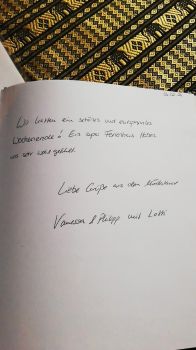 Wir hatten ein schönes und entspanntes
Wochenende! Ein super Ferienhaus. Haben
uns sehr wohl gefühlt.
Liebe Grüße aus dem
Vanessa & Philipp mit Lotti